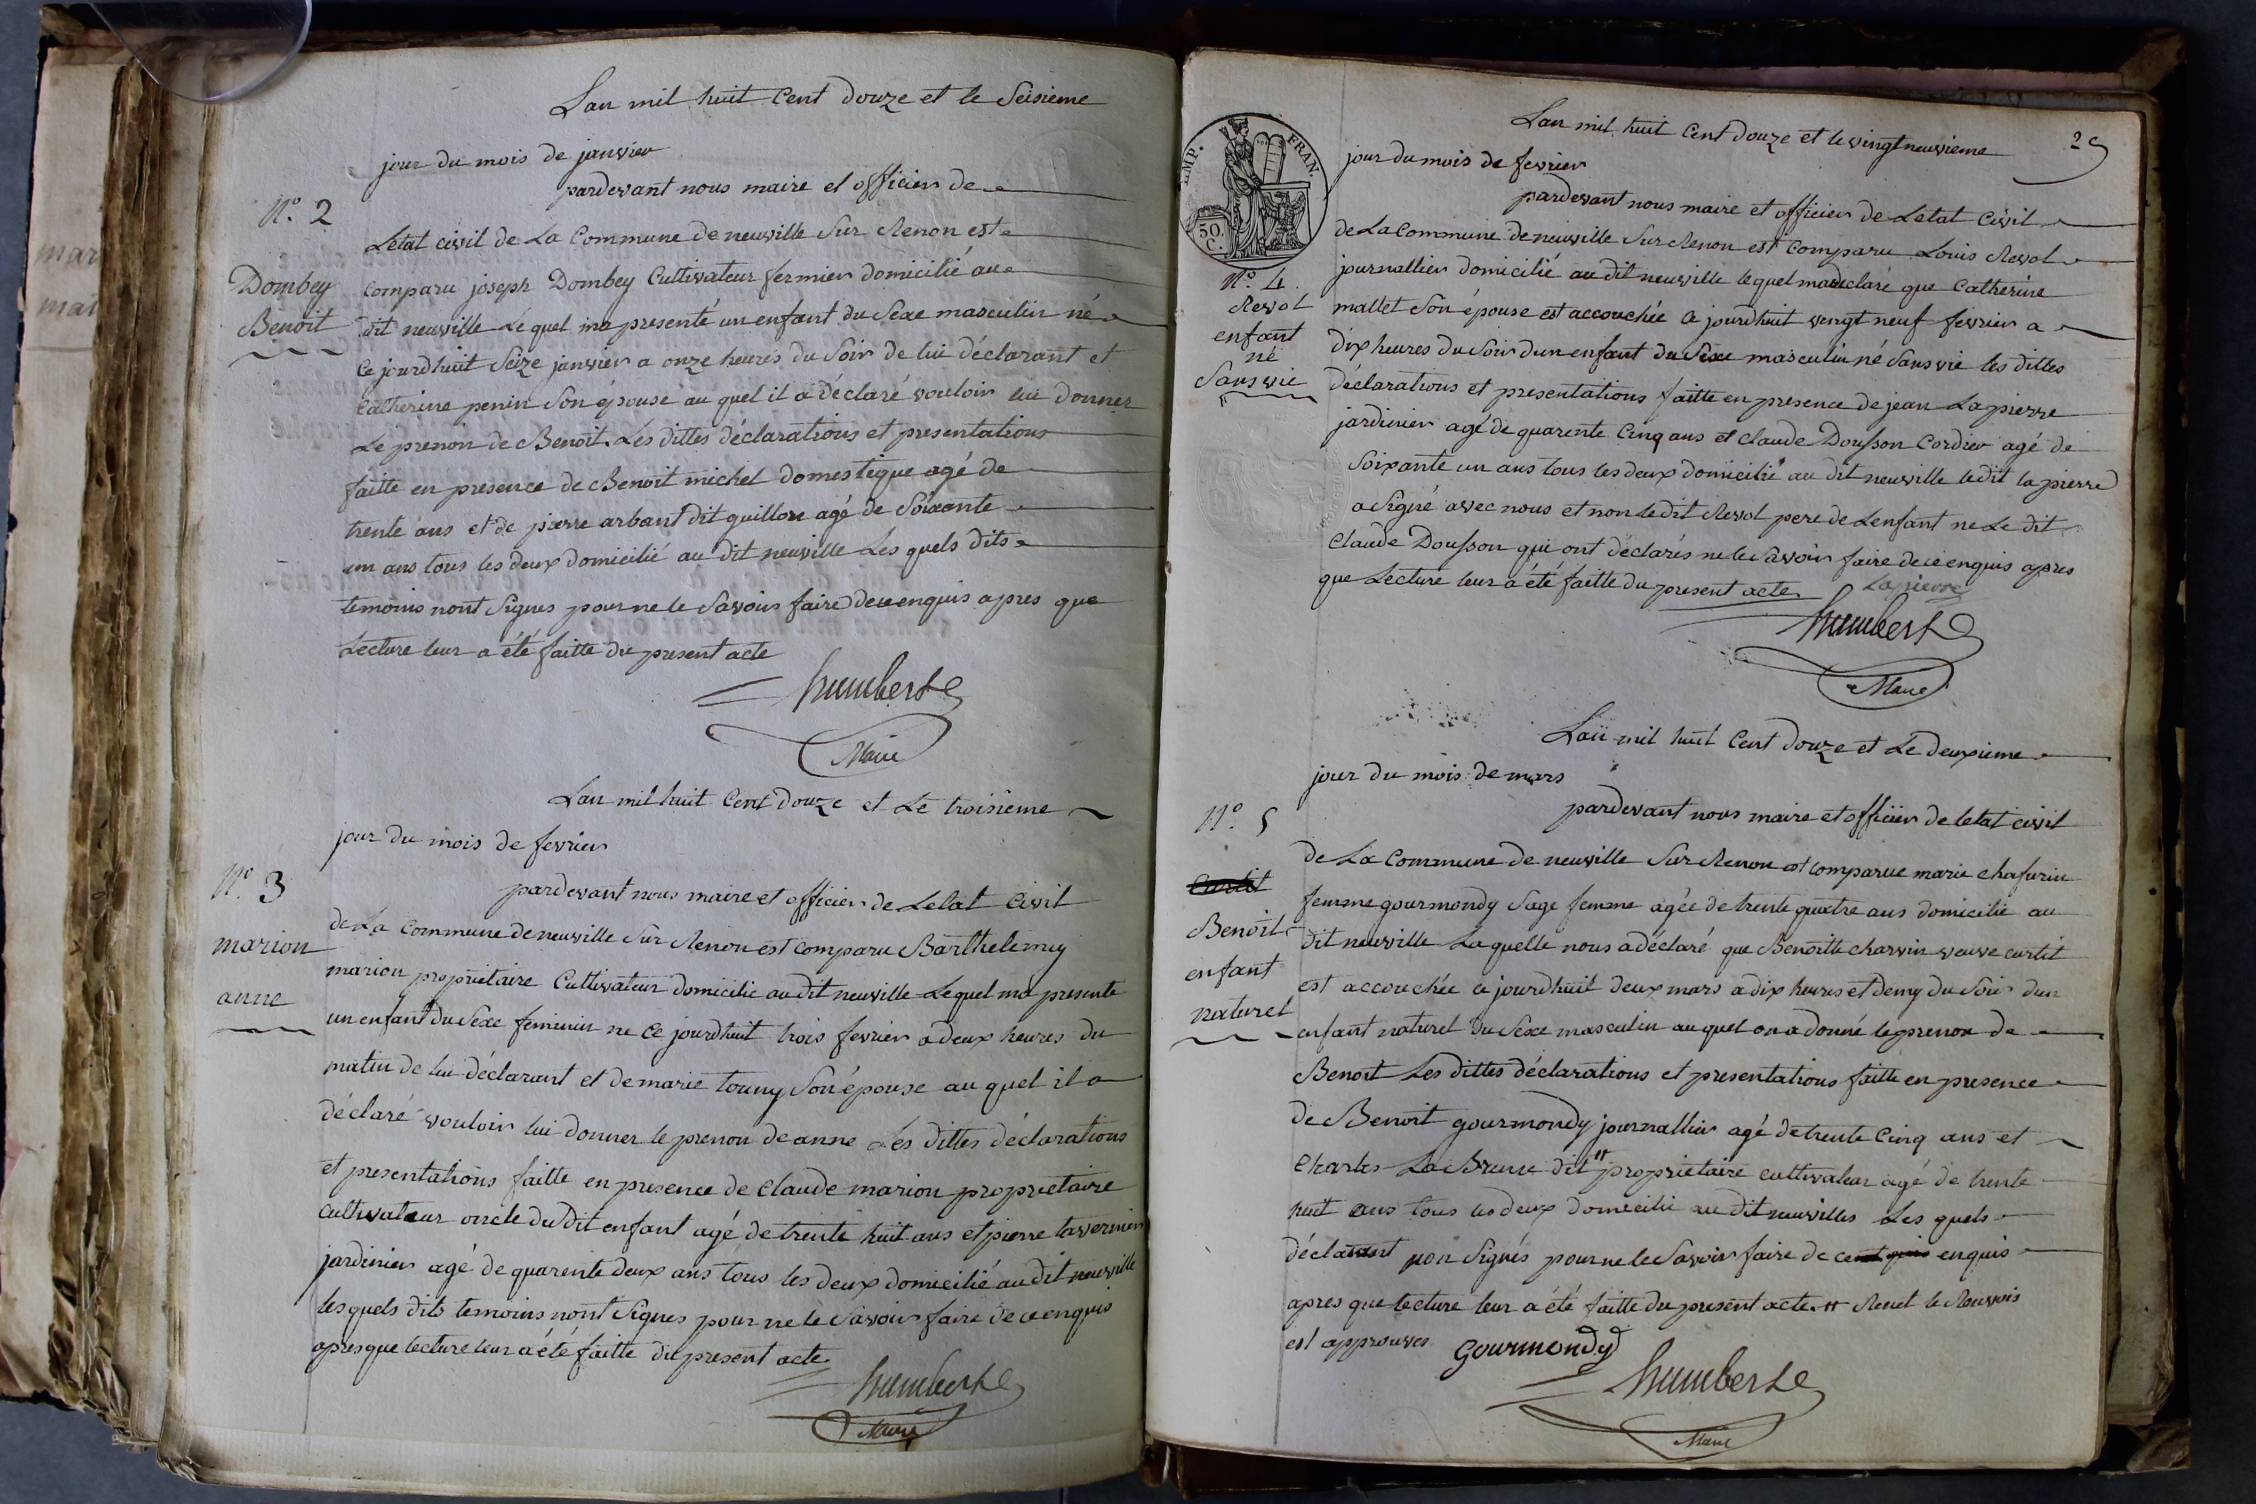 Lan mil huit Cent douze et le Seisieme
jour du mois de janvier
pardevant nous maire et officier de
N.º 2
Dombey
Benoit
Letat civil de La Commune de neuville Sur Renon est
comparu joseph Dombey Cultivateur fermier domicilié au
dit neuville Le quel ma presenté un enfant du Sexe masculin né
Ce jourdhuit Seize janvier a onze heures du Soir de lui déclarant et
Catherine penin Son épouse au quel il a déclaré vouloir lui donner
Le prenon de Benoit. Les dittes déclarations et presentations
faitte en presence de Benoit michel domestique agé de
trente ans et de pierre arbant dit guillon agé de Soixante
un ans tous les deux domicilié au dit neuville Les quels dits
temoins nont Signes pour ne le Savoir faire de ce enquis apres que
Lecture leur a été faitte du present acte
humbert
Maire
Lan mil huit Cent douze et Le troisieme
jour du mois de fevrier
N.º 3
marion
anne
pardevant nous maire et officier de Letat Civil
de La Commune de neuville Sur Renon est comparu Barthelemey
marion propriétaire Cultivateur domicilié au dit neuville Le quel ma presenté
un enfant du Sexe feminin ne Ce jourdhuit trois fevrier a deux heures du
matin de lui déclarant et de marie touny Son épouse au quel il a
déclaré vouloir lui donner le prenon de anne Les dittes déclarations
et presentations faitte en presence de Claude marion proprietaire
cultivateur oncle du dit enfant agé de trente huit ans et pierre tavernier
jardinier agé de quarente deux ans tous les deux domicilié au dit neuville
les quels dits temoins nont Signes pour ne le Savoir faire de ce enquis
apres que lecture leur a été faitte du present acte
humbert
Maire
IMP. FRAN.
50. C.
Lan mil huit Cent douze et le vingt neuvieme
25
jour du mois de fevrier
pardevant nous maire et officier de Letat Civil
N.º 4.
Revol
enfant
né
Sans vie
de La Commune de neuville Sur Renon est Comparu Louis Revol
journallier domicilié au dit neuville le quel ma déclaré que Catherine
mallet Son épouse est accouchée a jourdhuit vengt neuf fevrier a
dix heures du Soir dun enfant du Sexe masculin né Sans vie les dittes
déclarations et presentations faitte en presence de jean Lapierre
jardinier agé de quarente Cinq ans et Claude Dousson Cordier agé de
Soixante un ans tous les deux domicilié au dit neuville ledit lapierre
a Signé avec nous et non Le dit Revol pere de Lenfant ne Le dit
Claude Dousson qui ont déclarés ne le Savoir faire de ce enquis apres
que Lecture leur a été faitte du present acte. Lapierre
humbert
Maire
Lan mil huit Cent douze et Le deuxieme
jour du mois de mars
pardevant nous maire et officier de letat civil
N.º 5
Curtit
Benoit
enfant
naturel
de La Commune de neuville Sur Renon est comparue marie chafurin
femme gourmondy Sage femme agée de trente quatre ans domicilié au
dit neuville La quelle nous a déclaré que Benoitte charvin veuve curtit
est accouchée a jourdhuit deux mars a dix heures et demy du Soir dun
enfant naturel du Sexe masculin au quel on a donné le prenon de
Benoit Les dittes déclarations et presentations faitte en presence
de Benoit gourmondy journallier agé de trente Cinq ans et
Charles La Brune dit # propriétaire cultivateur agé de trente
huit ans tous les deux domicilié au dit neuvilles Les quels
déclarant non Signés pour ne le Savoir faire de ce enquis
apres que lecture leur a été faitte du present acte. # Renet le Renvois
est approuves Gourmondy
humbert
Maire